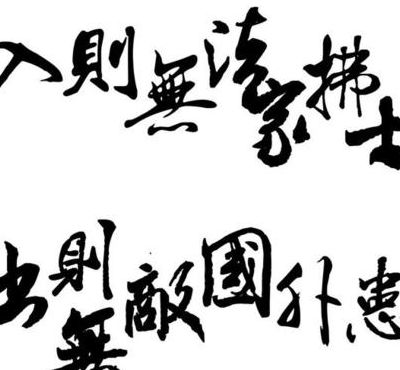 入則無法家拂士
出則無敵國外患